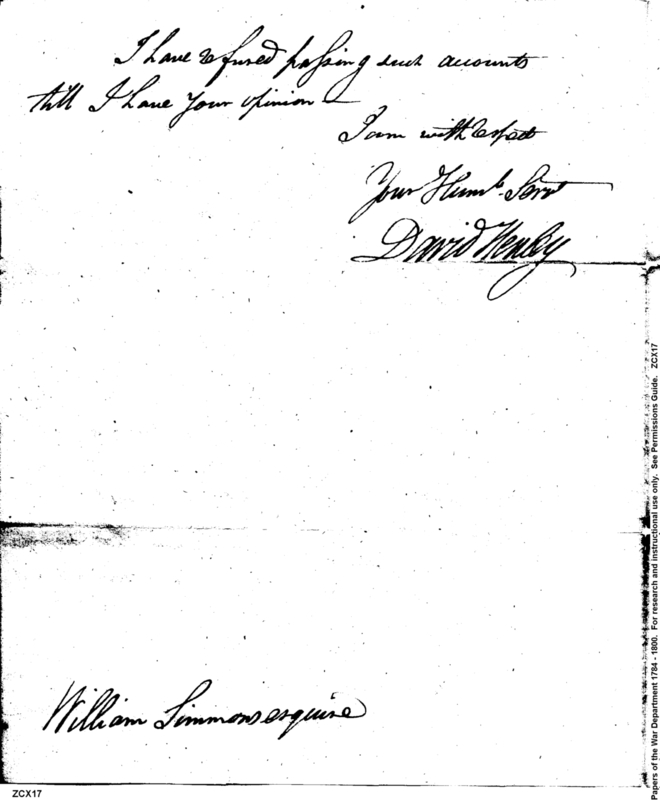 I have refused passing such accounts
till I have your opinion —
I am with respect
Your Humb. Servt
David Henley
William Simmons esquire
Papers of the War Department 1784 - 1800. For research and instructional use only. See Permissions Guide. ZCX17
ZCX17